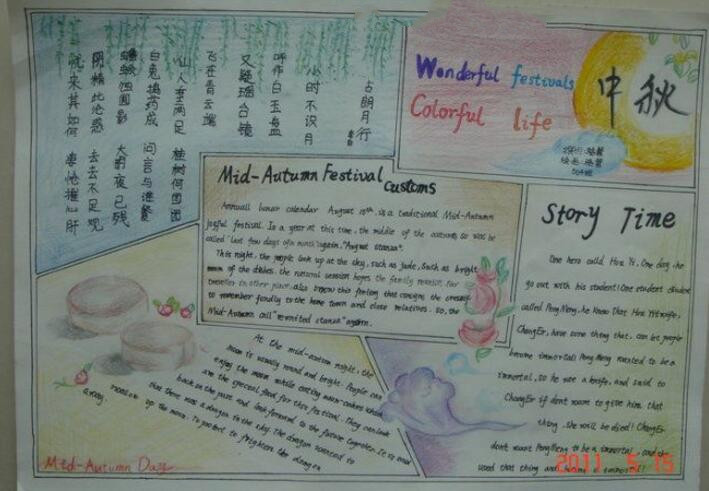 古朗月行
小时不识月
呼作白玉盘
又疑瑶台镜
飞在青云端
仙人垂两足 桂树何团团
白兔捣药成 问言与谁餐
蟾蜍蚀圆影 大明夜已残
阴精此沦惑 去去不足观
忧来其如何 凄怆摧心肝
Wonderful festivals
Colorful life
中秋
Mid-Autumn Festival
Customs
Annual lunar calendar August 15th. is a traditional Mid-Autumn
joyful festival. Is a year at this time. the middle of the
called
This night. the people look up at the sky. such as jade. Such as bright
of the dishes. the natural session hopes the family reunion. Far
traveller in other place. also
to remember fondly to the home town and close relatives. So, the
Mid-Autumn call "reunited stanza" again.
Story Time
One hero calld Hou Yi. One day he
go out with his student! One student
called Peng Meng. he Know That Hou Yi twife,
Chang Er, have some thing that. can let people
become immortal! Peng Meng wanted to be a
immortal, so he use a knife, and said to
Chang Er if dont want to give him that
thing. she will be died! Chang Er
dont want Peng Meng to be a immortal. and she
used that thing and
At the mid-autumn night, the
moon is usually round and bright. People can
enjoy the moon while eating moon-cakes which
are the special food for this festival. They can look
back on the past and look forward to the future together. It is said
that there was a dragon in the sky. The dragon wanted to
swallow up the moon. To protect to frighten the dragon
away.
Mid-Autumn Day
2011 5 15